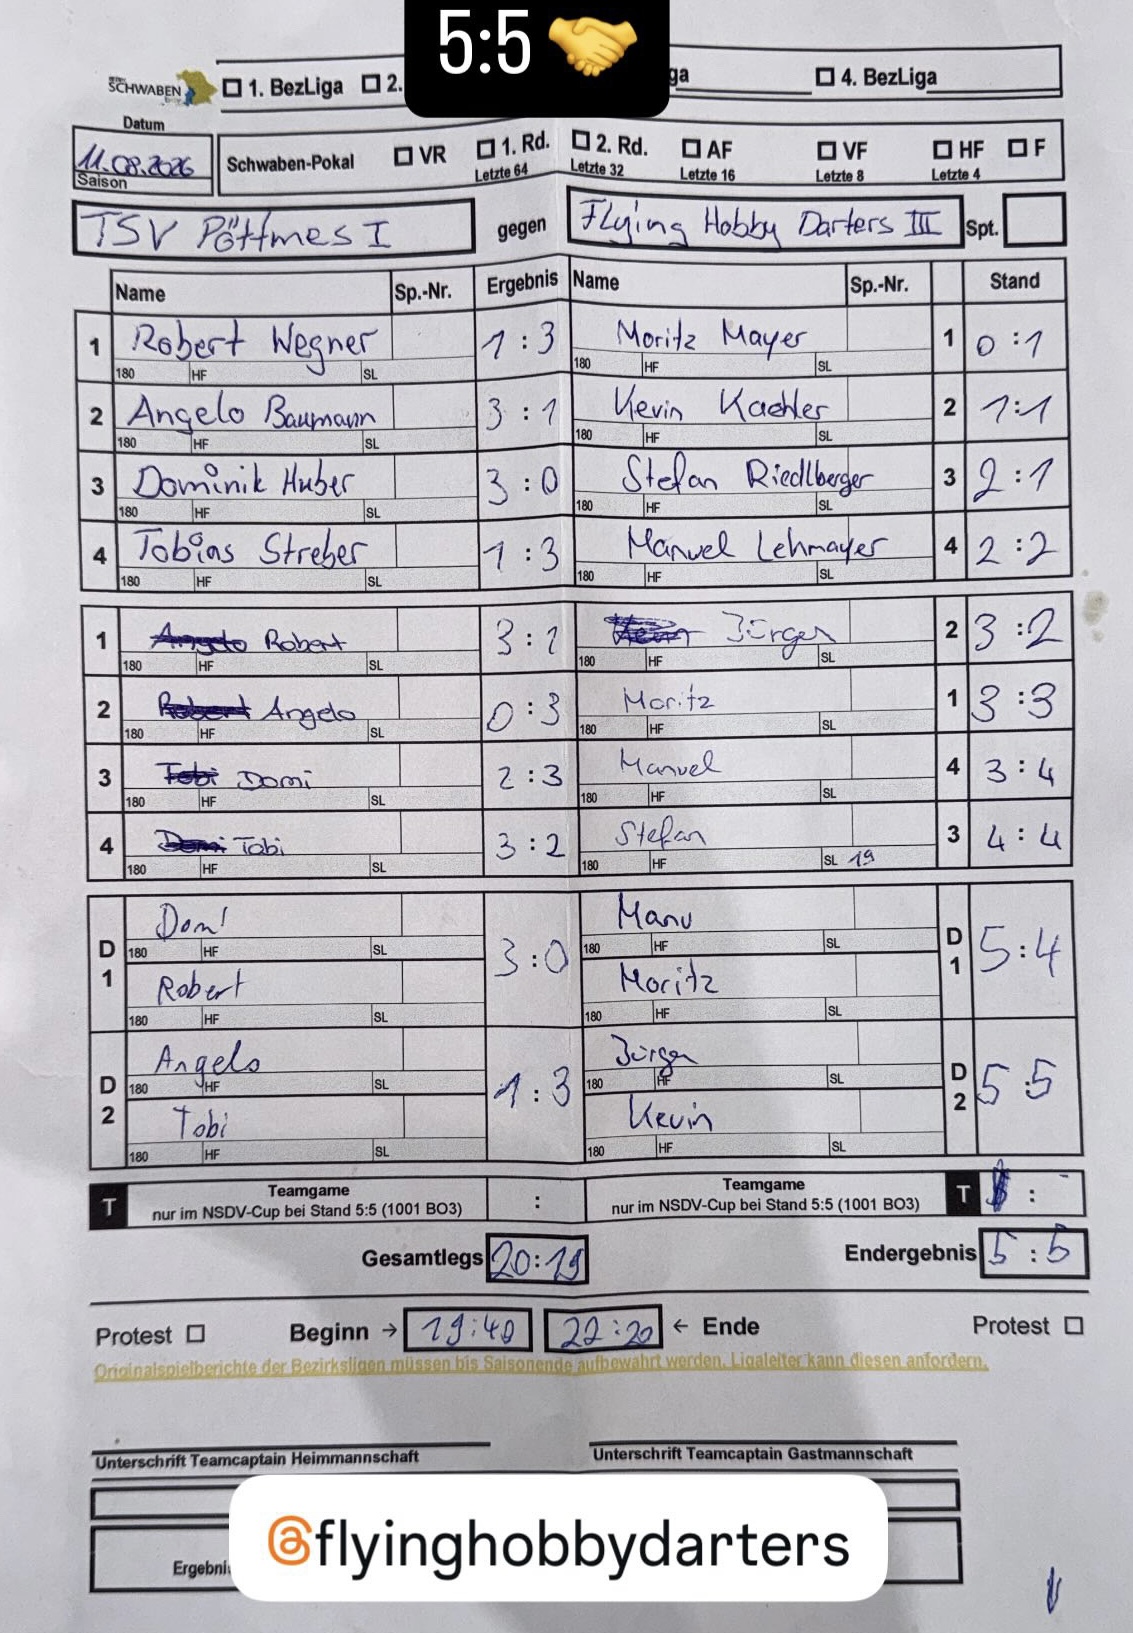 5:5 🤝
SCHWABEN
☐ 1. BezLiga ☐ 2. ga ☐ 4. BezLiga
Datum
11.08.2026
Saison
Schwaben-Pokal ☐ VR ☐ 1. Rd. ☐ 2. Rd. ☐ AF ☐ VF ☐ HF ☐ F
Letzte 64 Letzte 32 Letzte 16 Letzte 8 Letzte 4
TSV Pöttmes I gegen Flying Hobby Darters III Spt.
Name Sp.-Nr. Ergebnis Name Sp.-Nr. Stand
1 Robert Wegner 1:3 Moritz Mayer 1 0:1
180 HF SL 180 HF SL
2 Angelo Baumann 3:1 Kevin Kaehler 2 1:1
180 HF SL 180 HF SL
3 Dominik Huber 3:0 Stefan Riedlberger 3 2:1
180 HF SL 180 HF SL
4 Tobias Streber 1:3 Manuel Lehmayer 4 2:2
180 HF SL 180 HF SL
1 Angelo Robert 3:1 Jürgen 2 3:2
180 HF SL 180 HF SL
2 Robert Angelo 0:3 Moritz 1 3:3
180 HF SL 180 HF SL
3 Tobi Domi 2:3 Manuel 4 3:4
180 HF SL 180 HF SL
4 Domi Tobi 3:2 Stefan 3 4:4
180 HF SL 180 HF SL 19
D1 Domi 3:0 Manu D1 5:4
180 HF SL 180 HF SL
Robert Moritz
180 HF SL 180 HF SL
D2 Angelo 1:3 Jürgen D2 5:5
180 HF SL 180 HF SL
Tobi Kevin
180 HF SL 180 HF SL
T Teamgame : Teamgame T :
nur im NSDV-Cup bei Stand 5:5 (1001 BO3) nur im NSDV-Cup bei Stand 5:5 (1001 BO3)
Gesamtlegs 20:19 Endergebnis 5:5
Protest ☐ Beginn → 19:40 22:20 ← Ende Protest ☐
Originalspielberichte der Bezirksligen müssen bis Saisonende aufbewahrt werden. Ligaleiter kann diesen anfordern.
Unterschrift Teamcaptain Heimmannschaft Unterschrift Teamcaptain Gastmannschaft
@flyinghobbydarters
Ergebni